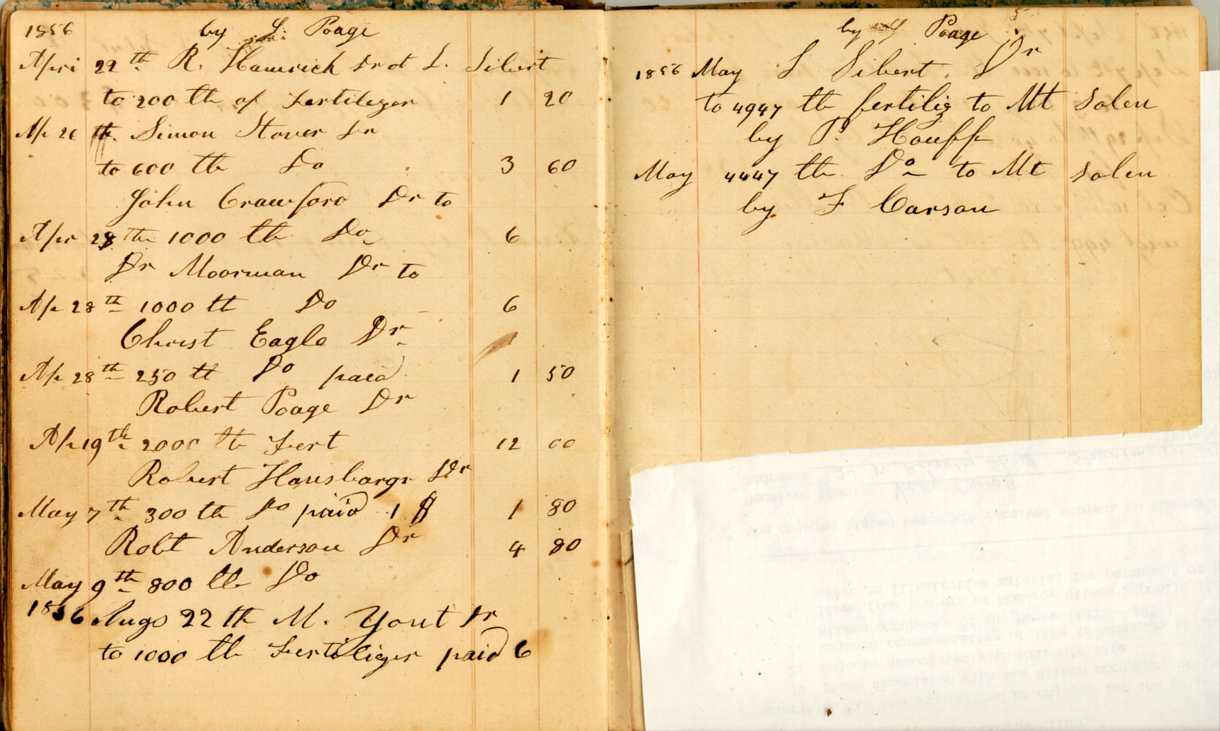 1856 by L. Poage
Apri 22th R. Hamrick Dr at L. Sibert
to 200 th of Fertilizer 1 20
Ap 26 th Simon Stover Dr
to 600 th Do 3 60
John Crawford Dr to
Apr 28th 1000 th Do 6
Dr Moorman Dr to
Ap 28th 1000 th Do 6
Christ Eagle Dr
Ap 28th 250 th Do paid 1 50
Robert Poage Dr
Ap 19th 2000 th Fert 12 00
Robert Dr
May 7th 300 th Do paid 1 $ 1 80
Robt Anderson Dr 4 80
May 9th 800 th Do
1856 Augs 22 th M. Yout Dr
to 1000 th Fertiliger paid 6
by Poage
1856 May L Sibert. Dr
to 4947 th fertilig to Mt Solen
by P. Houff
May 4447 th Do to Mt Solen
by F Carson